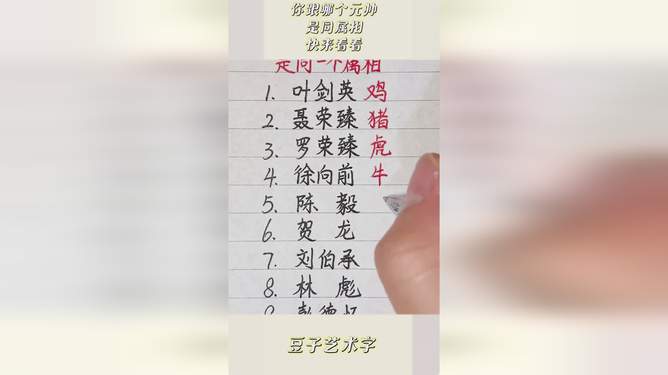 你跟哪个元帅
是同属相
快来看看
是同一个属相
1. 叶剑英 鸡
2. 聂荣臻 猪
3. 罗荣臻 虎
4. 徐向前 牛
5. 陈 毅
6. 贺 龙
7. 刘伯承
8. 林 彪
9. 彭德怀
豆子艺术字